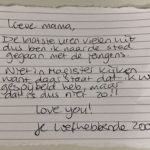 Lieve mama,
De laatste uren vielen uit
dus ben ik naar de stad
gegaan met de jongens
Niet in Magister kijken
want daar staat dat ik
gespijbeld heb, maar
dat is dus niet zo!!
love you!
Je liefhebbende zoon